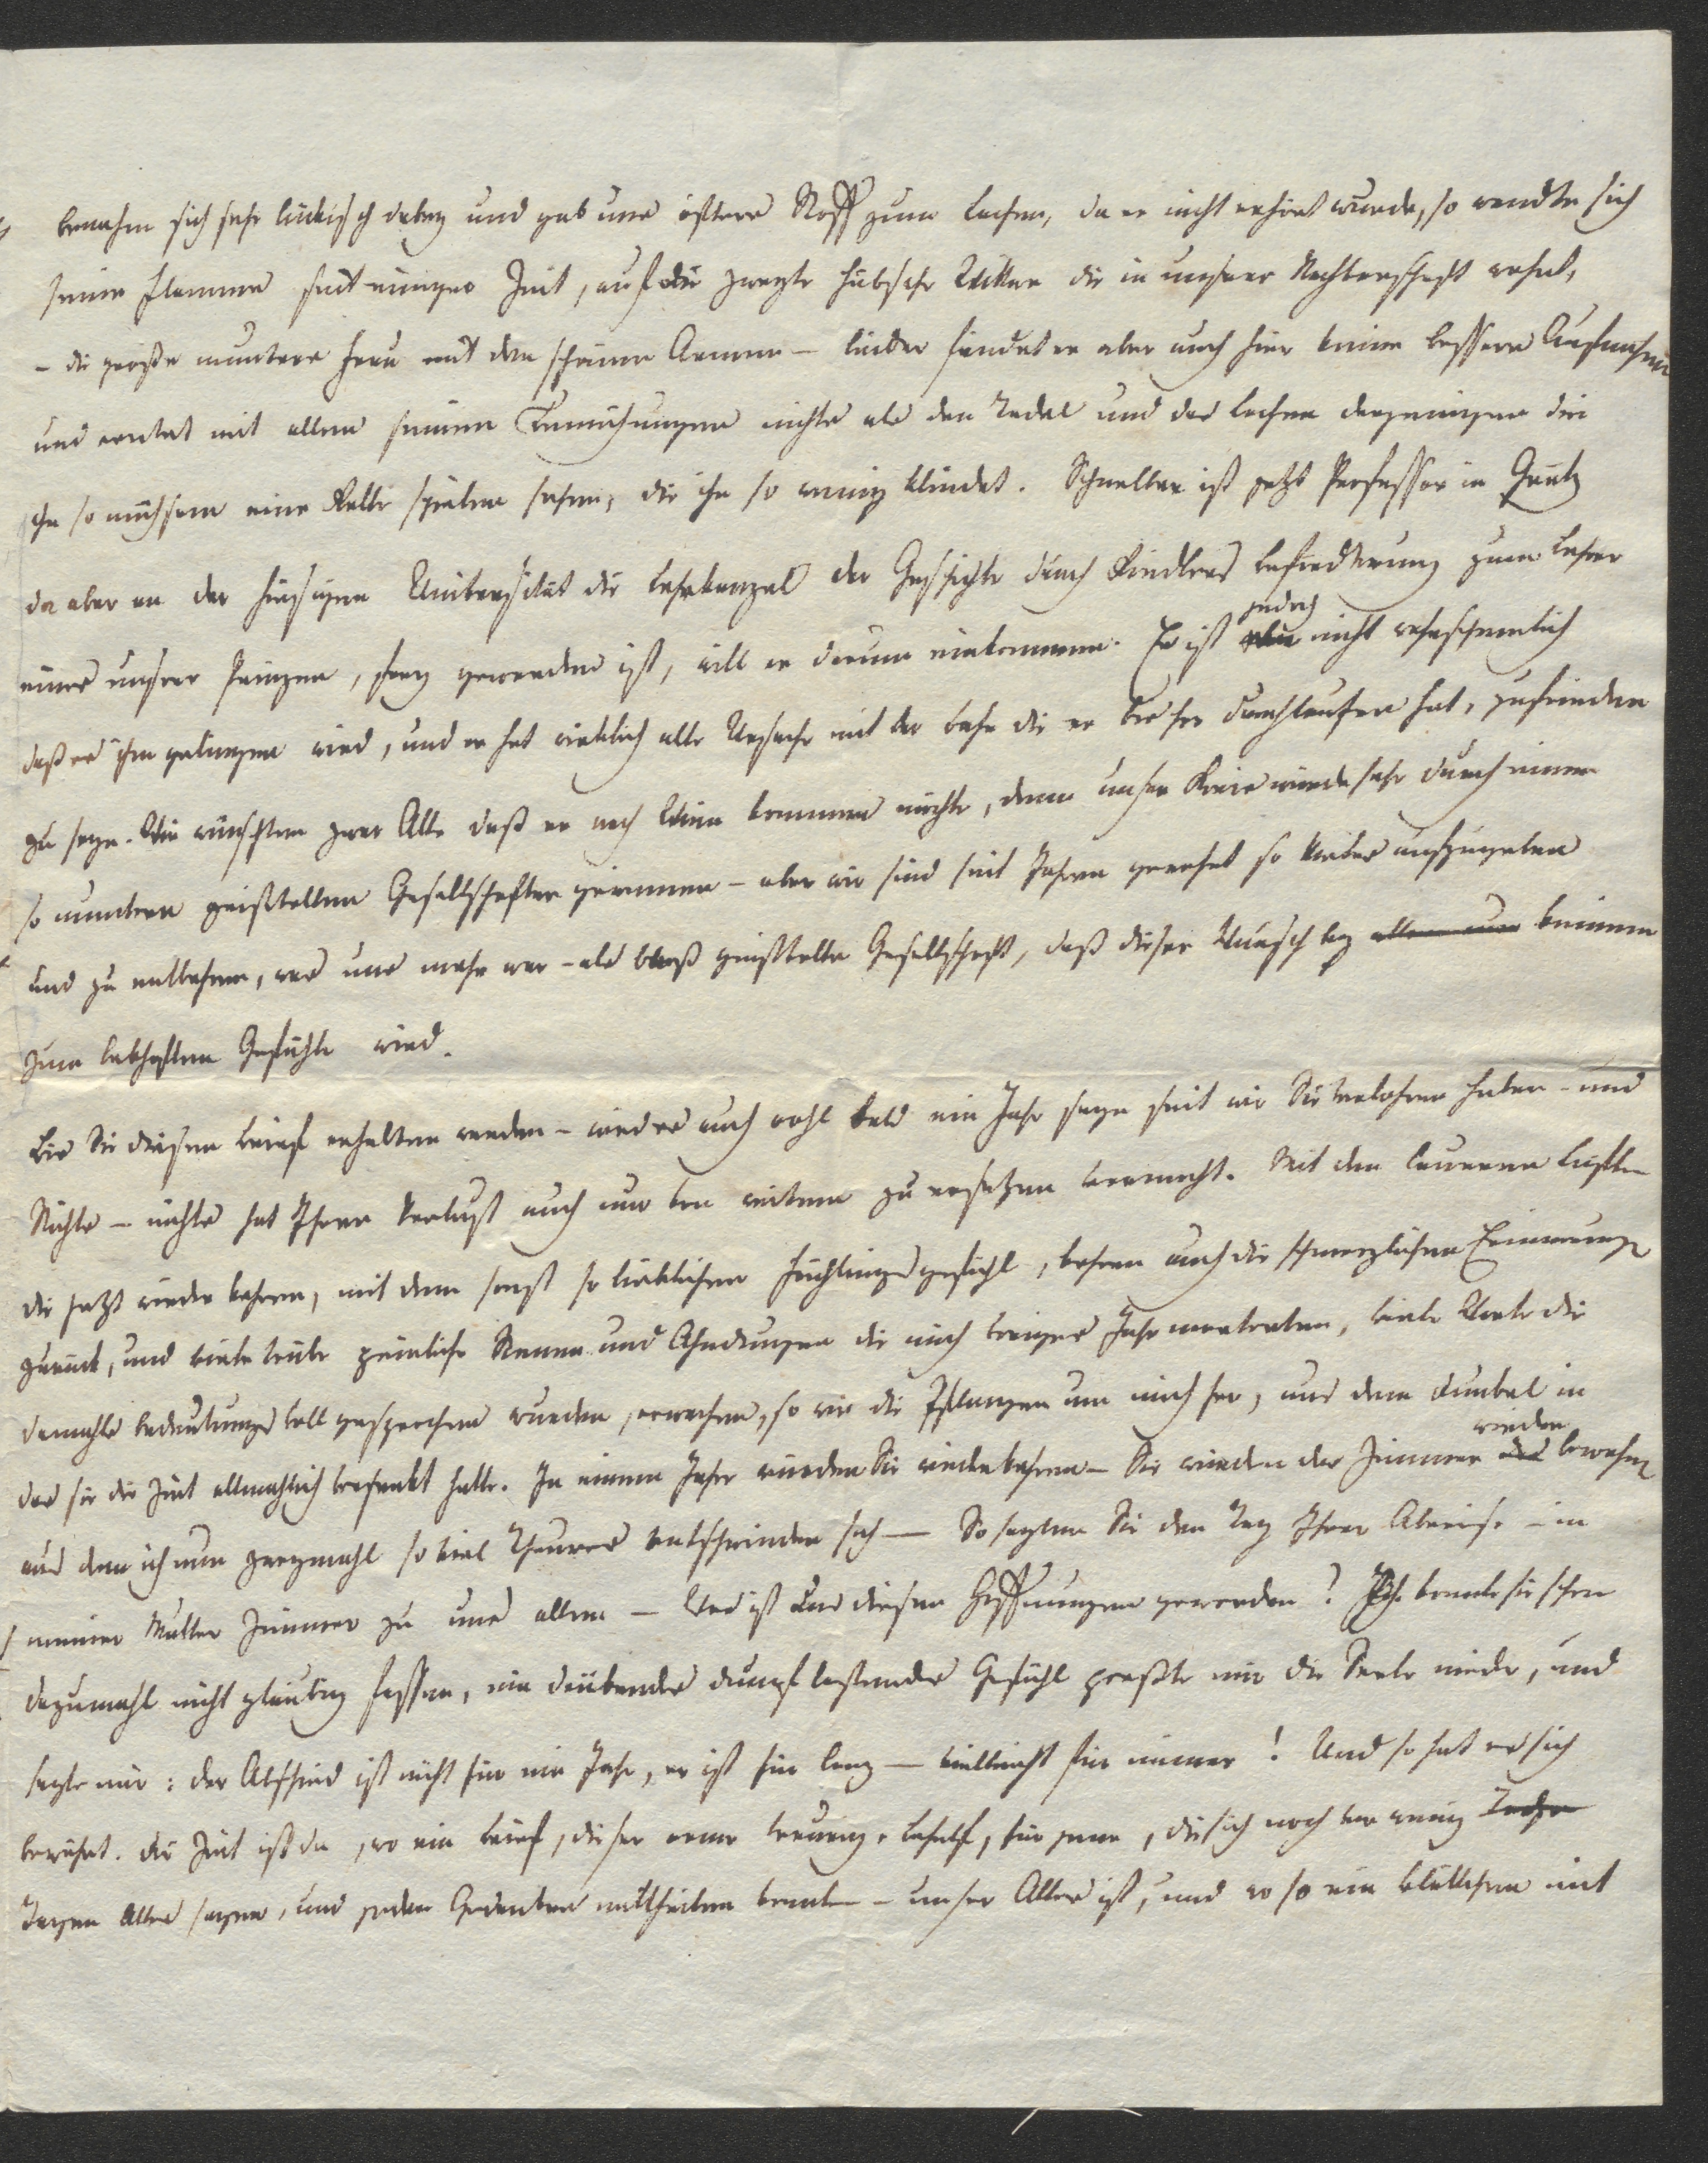 benahm sich sehr linkisch dabey und gab uns öfters Stoff zum lachen, da er nicht erhört wurde, so wendte sich
seine Flamme seit einiger Zeit, auf die zweyte hübsche Wittwe die in unsrer Nachbarschaft wohnt,
– die große muntere Frau mit den schönen Armen – leider findet er aber auch hier keine bessere Aufnahme
und erntet mit allen seinen Bemühungen nichts als den Tadel und das lachen derjenigen die
ihn so mühsam eine Rolle spielen sehen, die ihn so wenig kleidet. Schneller ist jetzt Professor in Gratz
da aber an der hiesigen Universität die Lehrkanzel der Geschichte durch Kindlers Beförderung zum Lehrer
eines unsrer Prinzen, frey geworden ist, will er darum einkommen. Es ist jedoch nicht wahrscheinlich
daß es ihm gelingen wird, und er hat wirklich alle Ursache mit der Bahn die er bis her durchlaufen hat, zufrieden
zu seyn. Wir wünschten zwar Alle daß er nach Wien kommen möchte, denn unser Kreis würde sehr durch einen
so muntern geistvollen Gesellschafter gewinnen – aber wir sind seit Jahren gewohnt so vieles aufzugeben
und zu entbehren, was uns mehr war – als blos geistvolle Gesellschaft, daß dieser Wunsch bey allen nur keinem
zum lebhaften Gefühle wird.
Bis Sie diesen Brief erhalten werden – wird es auch wohl bald ein Jahr seyn seit wir Sie verlohren haben – und
Nichts – nichts hat Ihren Verlust auch nur von weitem zu ersetzen vermocht. Mit den lauern Lüften
die jetzt wieder kehren, mit dem sonst so lieblichen Frühlingsgefühl, kehren auch die schmerzlichen Erinnerungen
zurück, und viele trübe peinliche Stunden und Ahndungen die mich voriges Jahr marterten, viele Worte die
damahls bedeutungsvoll gesprochen wurden, erwachen, so wie die Pflanzen um mich her, aus dem Dunkel in
das sie die Zeit allmählich versenkt hatte. In einem Jahre würden Sie wiederkehren – Sie würden das Zimmer wieder bewohnen
aus dem ich nun zweymahl so viel Theures entschwinden sah – So sagten Sie den Tag Ihrer Abreise – in
meiner Mutter Zimmer zu uns allen – Was ist aus diesen Hoffnungen geworden? Ich konnte sie schon
dazumahl nicht gläubig fassen, ein drückendes dumpf lastendes Gefühl preßte mir die Seele nieder, und
sagte mir: der Abschied ist nicht für ein Jahr, er ist für lang – vielleicht für immer! Und so hat es sich
bewährt. die Zeit ist da, wo ein Brief, dieser arme traurige Behelf, für jene, die sich noch vor wenig
Tagen Alles sagen, und jeden Gedanken mittheilen konnten – unser Alles ist, und wo so ein Blättchen mit